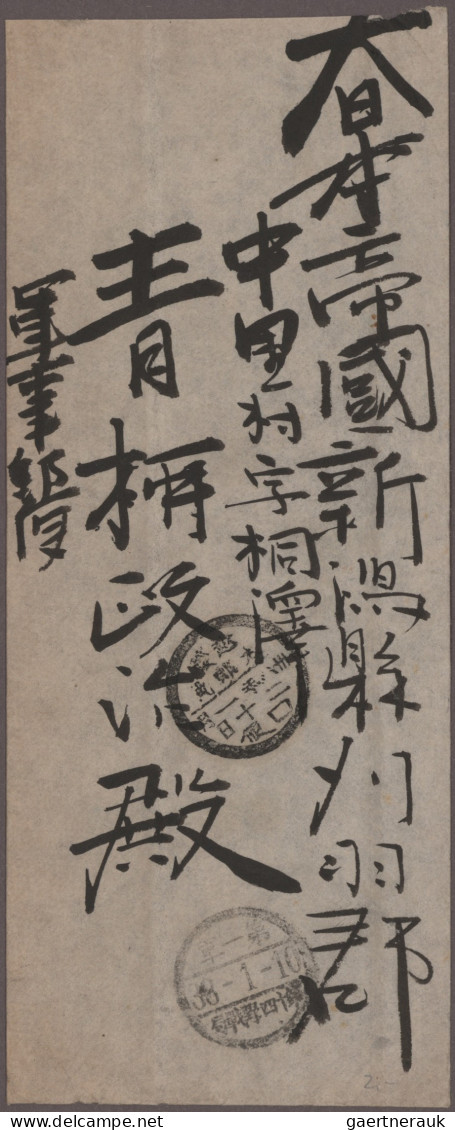 大日本帝國新潟縣刈羽郡
中里村字桐澤
青柳政治殿
軍事郵便
第一軍
38-1-10
gaertnerauk